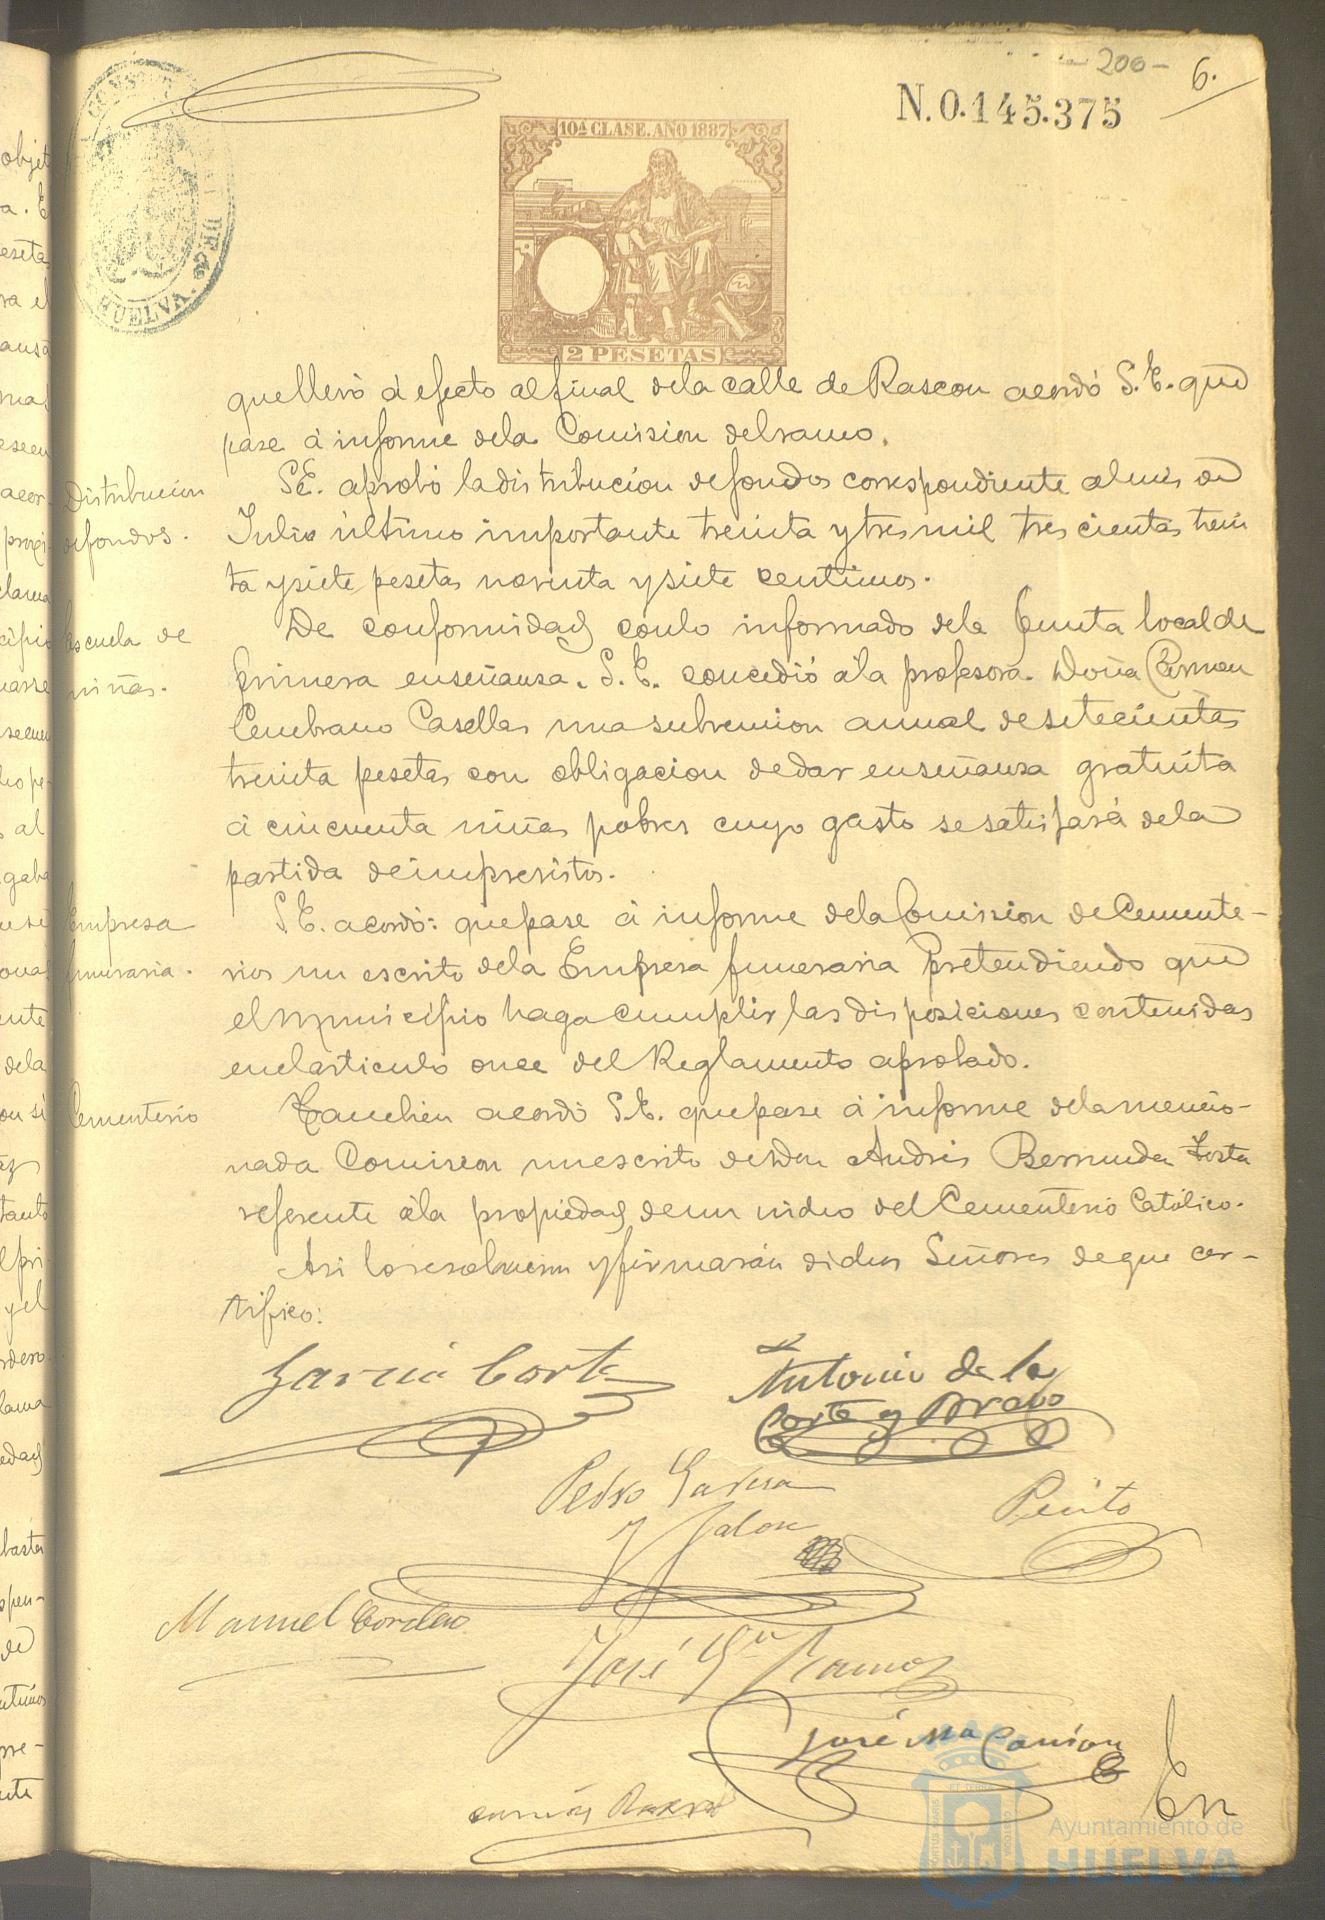 200-
6.
N.0.145.375
10ª CLASE. AÑO 1887
2 PESETAS
HUELVA.
que llevó á efecto al final dela calle de Rascon acordó S.E. que
pase á informe dela Comision del ramo.
Distribucion
defondos.
S.E. aprobó la distribucion defondos correspondiente al mes de
Julio último importante treinta y tres mil trescientas trein
ta y siete pesetas noventa y siete centimos.
Escuela de
niñas.
De conformidad conlo informado dela Junta local de
primera enseñansa. S.E. concedió ála profesora Doña Carmen
Cembrano Casellas una subvencion annual desetecientas
treinta pesetas con obligacion dedar enseñansa gratuita
á cincuenta niñas pobres cuyo gasto sesatisfará dela
partida deimprevistos.
Empresa
funeraria.
S.E. acordó: que pase á informe dela Comision de Cemente-
rios un escrito dela Empresa funeraria Pretendiendo que
el Municipio haga cumplir las disposiciones contenidas
enelarticulo once del Reglamento aprobado.
Cementerio
Tambien acordó S.E. que pase á informe dela mencio-
nada Comision un escrito de Don Andrés Bermudez
referente ála propiedad deun nicho del Cementerio Católico.
Asi loresolvieron y firmarán dichos Señores deque cer-
tifico:
Garcia Corte
Antonio de la
Corte y Bravo
Pedro Garcia
Jalon
Pinto
Manuel Cordero
José Gª Ramos
José Mª
En
Ayuntamiento de
HUELVA
objet
a. E
peseta
ra el
mas
acor
clama
cipio
al
gaba
ente
dela
on si
tanto
y el
lama
edad
hasta
de
pre-